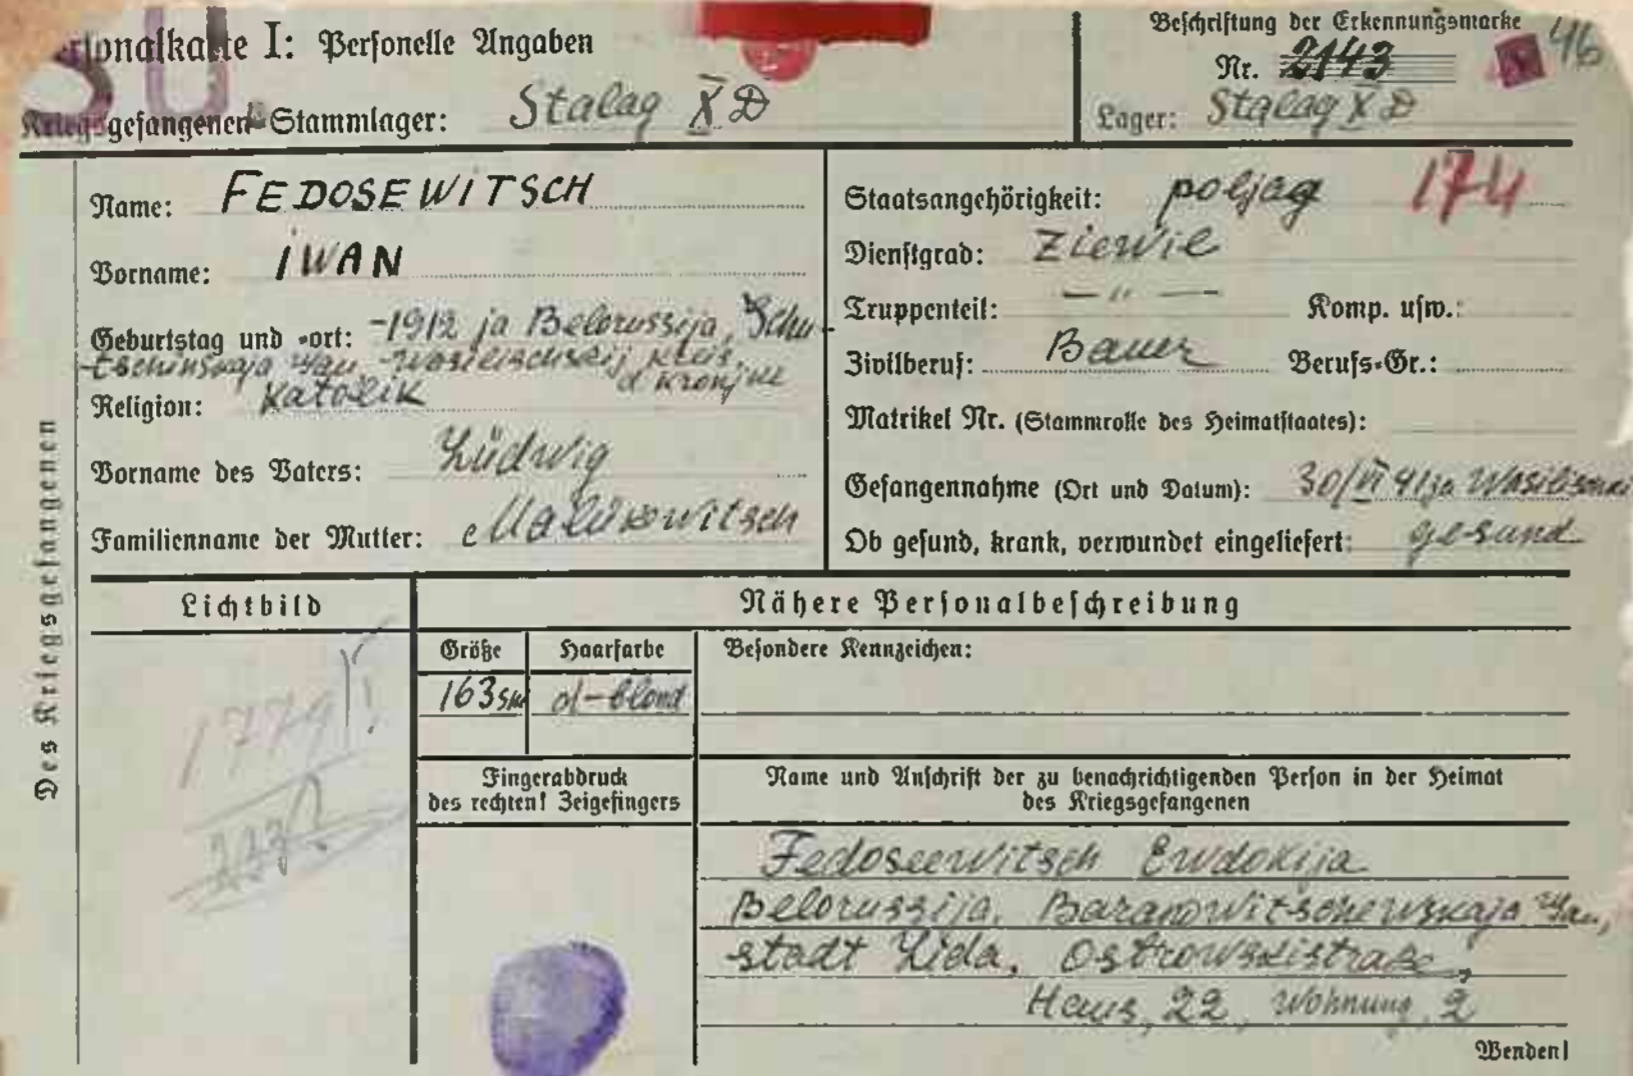 SU.
Personalkarte I: Personelle Angaben
Kriegsgefangenen-Stammlager: Stalag X D
Beschriftung der Erkennungsmarke
Nr. 2143
46
Lager: Stalag X D
Des Kriegsgefangenen
Name: FEDOSEWITSCH
Vorname: IWAN
Geburtstag und -ort: -1912 ja Belorussija, Schu-
tschinskaja
Religion: Katolik
Vorname des Vaters: Lüdwig
Familienname der Mutter: Malükowitsch
Staatsangehörigkeit: poljag 174
Dienstgrad: Ziewil
Truppenteil: — " — Komp. usw.:
Zivilberuf: Bauer Berufs-Gr.:
Matrikel Nr. (Stammrolle des Heimatstaates):
Gefangennahme (Ort und Datum): 30/VI 41 ja Wasilischki
Ob gesund, krank, verwundet eingeliefert: gesund
Lichtbild
1779
Nähere Personalbeschreibung
Größe Haarfarbe Besondere Kennzeichen:
163 sm d-blond
Fingerabdruck
des rechten! Zeigefingers
Name und Anschrift der zu benachrichtigenden Person in der Heimat
des Kriegsgefangenen
Fedoseewitsch Ewdokija
Belorussija, Baranowitschewskaja
stadt Lida, Ostrowskistraße,
Haus, 22, Wohnung, 2
Wenden!